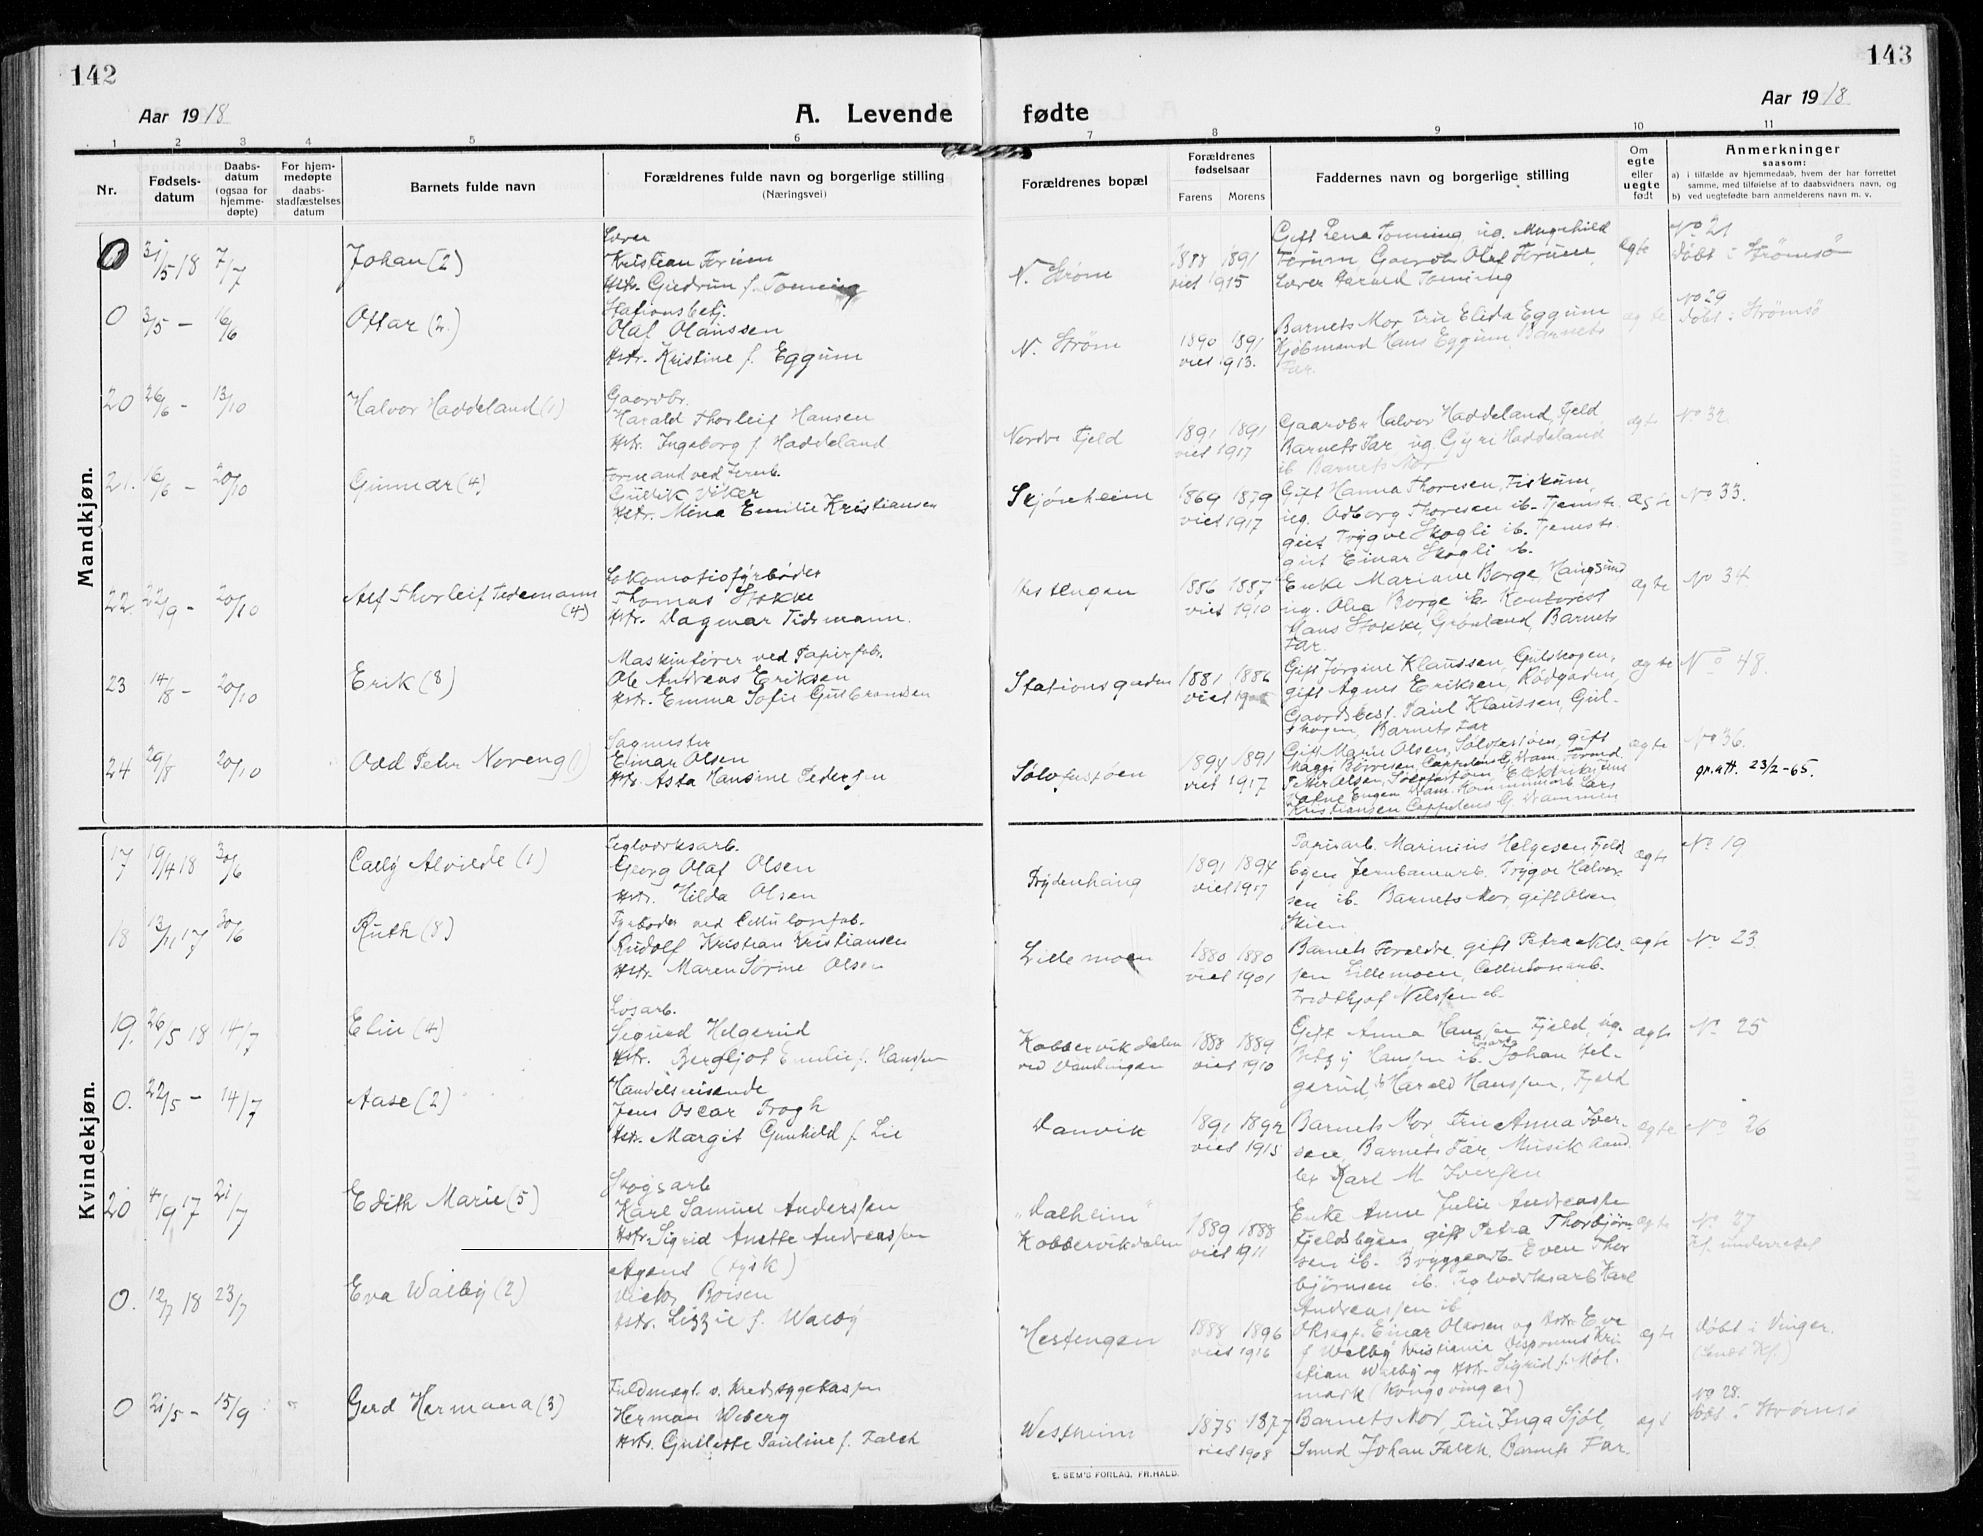 142
Aar 1918
A. Levende
1 2 3 4 5 6
Nr.
Fødsels-
datum
Daabs-
datum
(ogsaa for
hjemme-
døpte)
For hjem-
medøpte
daabs-
stadfæstelses
datum
Barnets fulde navn
Forældrenes fulde navn og borgerlige stilling
(Næringsvei)
Mandkjøn.
0 31/5 18 7/7 Johan (2)
Lærer
Kristian Forum
Hstr. Gudrun f. Tonning
0 3/5 - 16/6 Ottar (2.)
Stationsbetj.
Olaf Olaussen
Hstr. Kristine f. Eggum
20 26/6 - 13/10 Halvor Haddeland (1)
Gaardbr.
Harald Thorleif Hansen
Hstr. Ingeborg f. Haddeland
21. 16/6 - 20/10 Gunnar (4)
Formand ved Jernb.
Gullik Viker
Hstr. Mina Emilie Kristiansen
22. 22/9 - 20/10 Alf Thorleif Tidemann
(4)
Lokomotivfyrbøder
Thomas Stokke
Hstr. Dagmar Tidemann.
23 14/8 - 20/10 Erik (8)
Maskinfører ved Papirfab.
Ole Andreas Eriksen
Hstr. Emma Sofie Gulbrandsen
24 29/8 20/10 Odd Peter Noreng (1)
Sagmester
Einar Olsen
Hstr. Asta Hansine Pedersen
Kvindekjøn.
17 19/4 18 30/6 Cally Alvilde (1)
Teglværksarb.
Georg Olaf Olsen
Hstr. Hilda Olsen
18 13/11 17 30/6 Ruth (8)
Fyrbøder ved Cellulosefab.
Rudolf Kristian Kristiansen
Hstr. Maren Sørine Olsen
19. 26/5 18 14/7 Elin (4)
Løsarb.
Sigurd Helgerud
Hstr. Bergljot Emilie f. Hanssen
0. 22/5 - 14/7 Aase (2)
Handelsreisende
Jens Oscar Trogh
Hstr. Margit Gunhild f. Lie
20 4/9 17 21/7 Edith Marie (5)
Skogsarb
Karl Samuel Anderssen
Hstr. Sigrid Anette Andreassen
0. 12/7 18 23/7 Eva Walby (2)
Agent (tysk)
Victor Boisen
Hstr. Lizzie f. Walby
0 21/5 - 15/9 Gerd Hermana (3)
Fuldmægt. v. Kredssygekassen
Herman Wiberg
Hstr. Gullette Pauline f. Falch
143
Aar 1918
fødte
7 8 9 10 11
Forældrenes bopæl
Forældrenes
fødselsaar
Farens Morens
Faddernes navn og borgerlige stilling
Om
egte
eller
uegte
født
Anmerkninger
saasom:
a) i tilfælde av hjemmedaab, hvem der har forrettet
samme, med tilføielse af to daabsvidners navn, og
b) ved uegtefødte barn anmelderens navn m. v.
N. Strøm
1888 1891
viet 1915
Gift Lena Tonning, ug. Magnhild
Forum Gaardbr Olaf Forum
Lærer Harald Tonning
ægte
No 21
Døbt i Strømsø
N. Strøm
1890 1891
viet 1913.
Barnets Mor Fru Elida Eggum
Kjøbmand Hans Eggum Barnets
Far.
ægte
No 29
Døbt i Strømsø
Nordre Fjeld
1891 1891
viet 1917
Gaardbr Halvor Haddeland, Fjeld,
Barnets Far ug. Gyri Haddeland
ib Barnets Mor
ægte
No 32.
Skjønheim
1869 1879
viet 1917
Gift Hanna Thoresen, Fiskum
ug. Odborg Thoresen ib. Tjeneste-
gut Trygve Skogli ib. Tjeneste-
gut Einar Skogli ib.
ægte
No 33.
Hestengen
1886 1887
viet 1910
Enke Mariane Borge, Haugsund
ug. Olea Borge ib. Kontorist
Hans Stokke, Grønland, Barnets
Far.
ægte
No 34
Stationsgaden
1881 1886
viet
Gift Jørgine Klaussen, Gulskogen,
gift Agnes Eriksen, Rødgaden,
Gaardsbest. Paul Klaussen, Gul-
skogen, Barnets Far
ægte
No 48.
Sølvfastøen
1894 1891
viet 1917
Gift Marie Olsen, Sølvfastøen, gift
Maggi Børresen, Cappelens G. Dram. Formd.
Petter Olsen, Sølvfastøen, Elektriker Jens
Kristiansen Cappelens G. Drammen
ægte
No 36.
gr. att. 23/2-65.
Frydenhaug
1891 1894
viet 1917
Papirarb. Marinius Helgesen, Fjeld
byen Jernbanearb. Trygve Halvor-
sen ib. Barnets Mor, gift Olsen
Skien
ægte
No 19
Lillemoen
1880 1880
viet 1901
Barnets Foreldre, gift Petra Nils-
sen Lillemoen, Cellulosearb.
Fredthjof Nilssen ib.
ægte
No 23
Kobbervikdalen
ved Vandingen
1888 1889
viet 1910
Gift Anna Hanssen Fjeld, ug.
Betzy Hanssen ib. Løsarb. Johan Hel-
gerud, ib Harald Hanssen, Fjeld
ægte
No 25
Danvik
1891 1892
viet 1915
Barnets Mor, Fru Anna Iver-
sen, Barnets Far, Musik hand
ler Karl M. Iversen
ægte
No 26
"Dalheim"
Kobbervikdalen
1889 1888
viet 1911
Enke Anne Julie Andreassen
Fjeldsbyen gift Petra Thorbjørn-
sen ib. Bryggearb. Even Thor
bjørnsen ib. Teglværksarb Karl
Andreassen ib
ægte
No 27
Kf. underrettet
Hestengen
1888 1896
viet 1916
Einar Olsen og Hstr. Eva
f. Walby Kristiania Disponent Kri-
stian Walby og Hstr. Sigrid f. Møl-
mark (Kongsvinger)
ægte
Døbt i Vinger.
Westheim
1875 1877
viet 1908
Barnets Mor, Fru Inga Sjøl,
Smed Johan Falch, Barnets Far.
No 28.
Døbt i Strømsø
E. SEM'S FORLAG, FR.HALD.